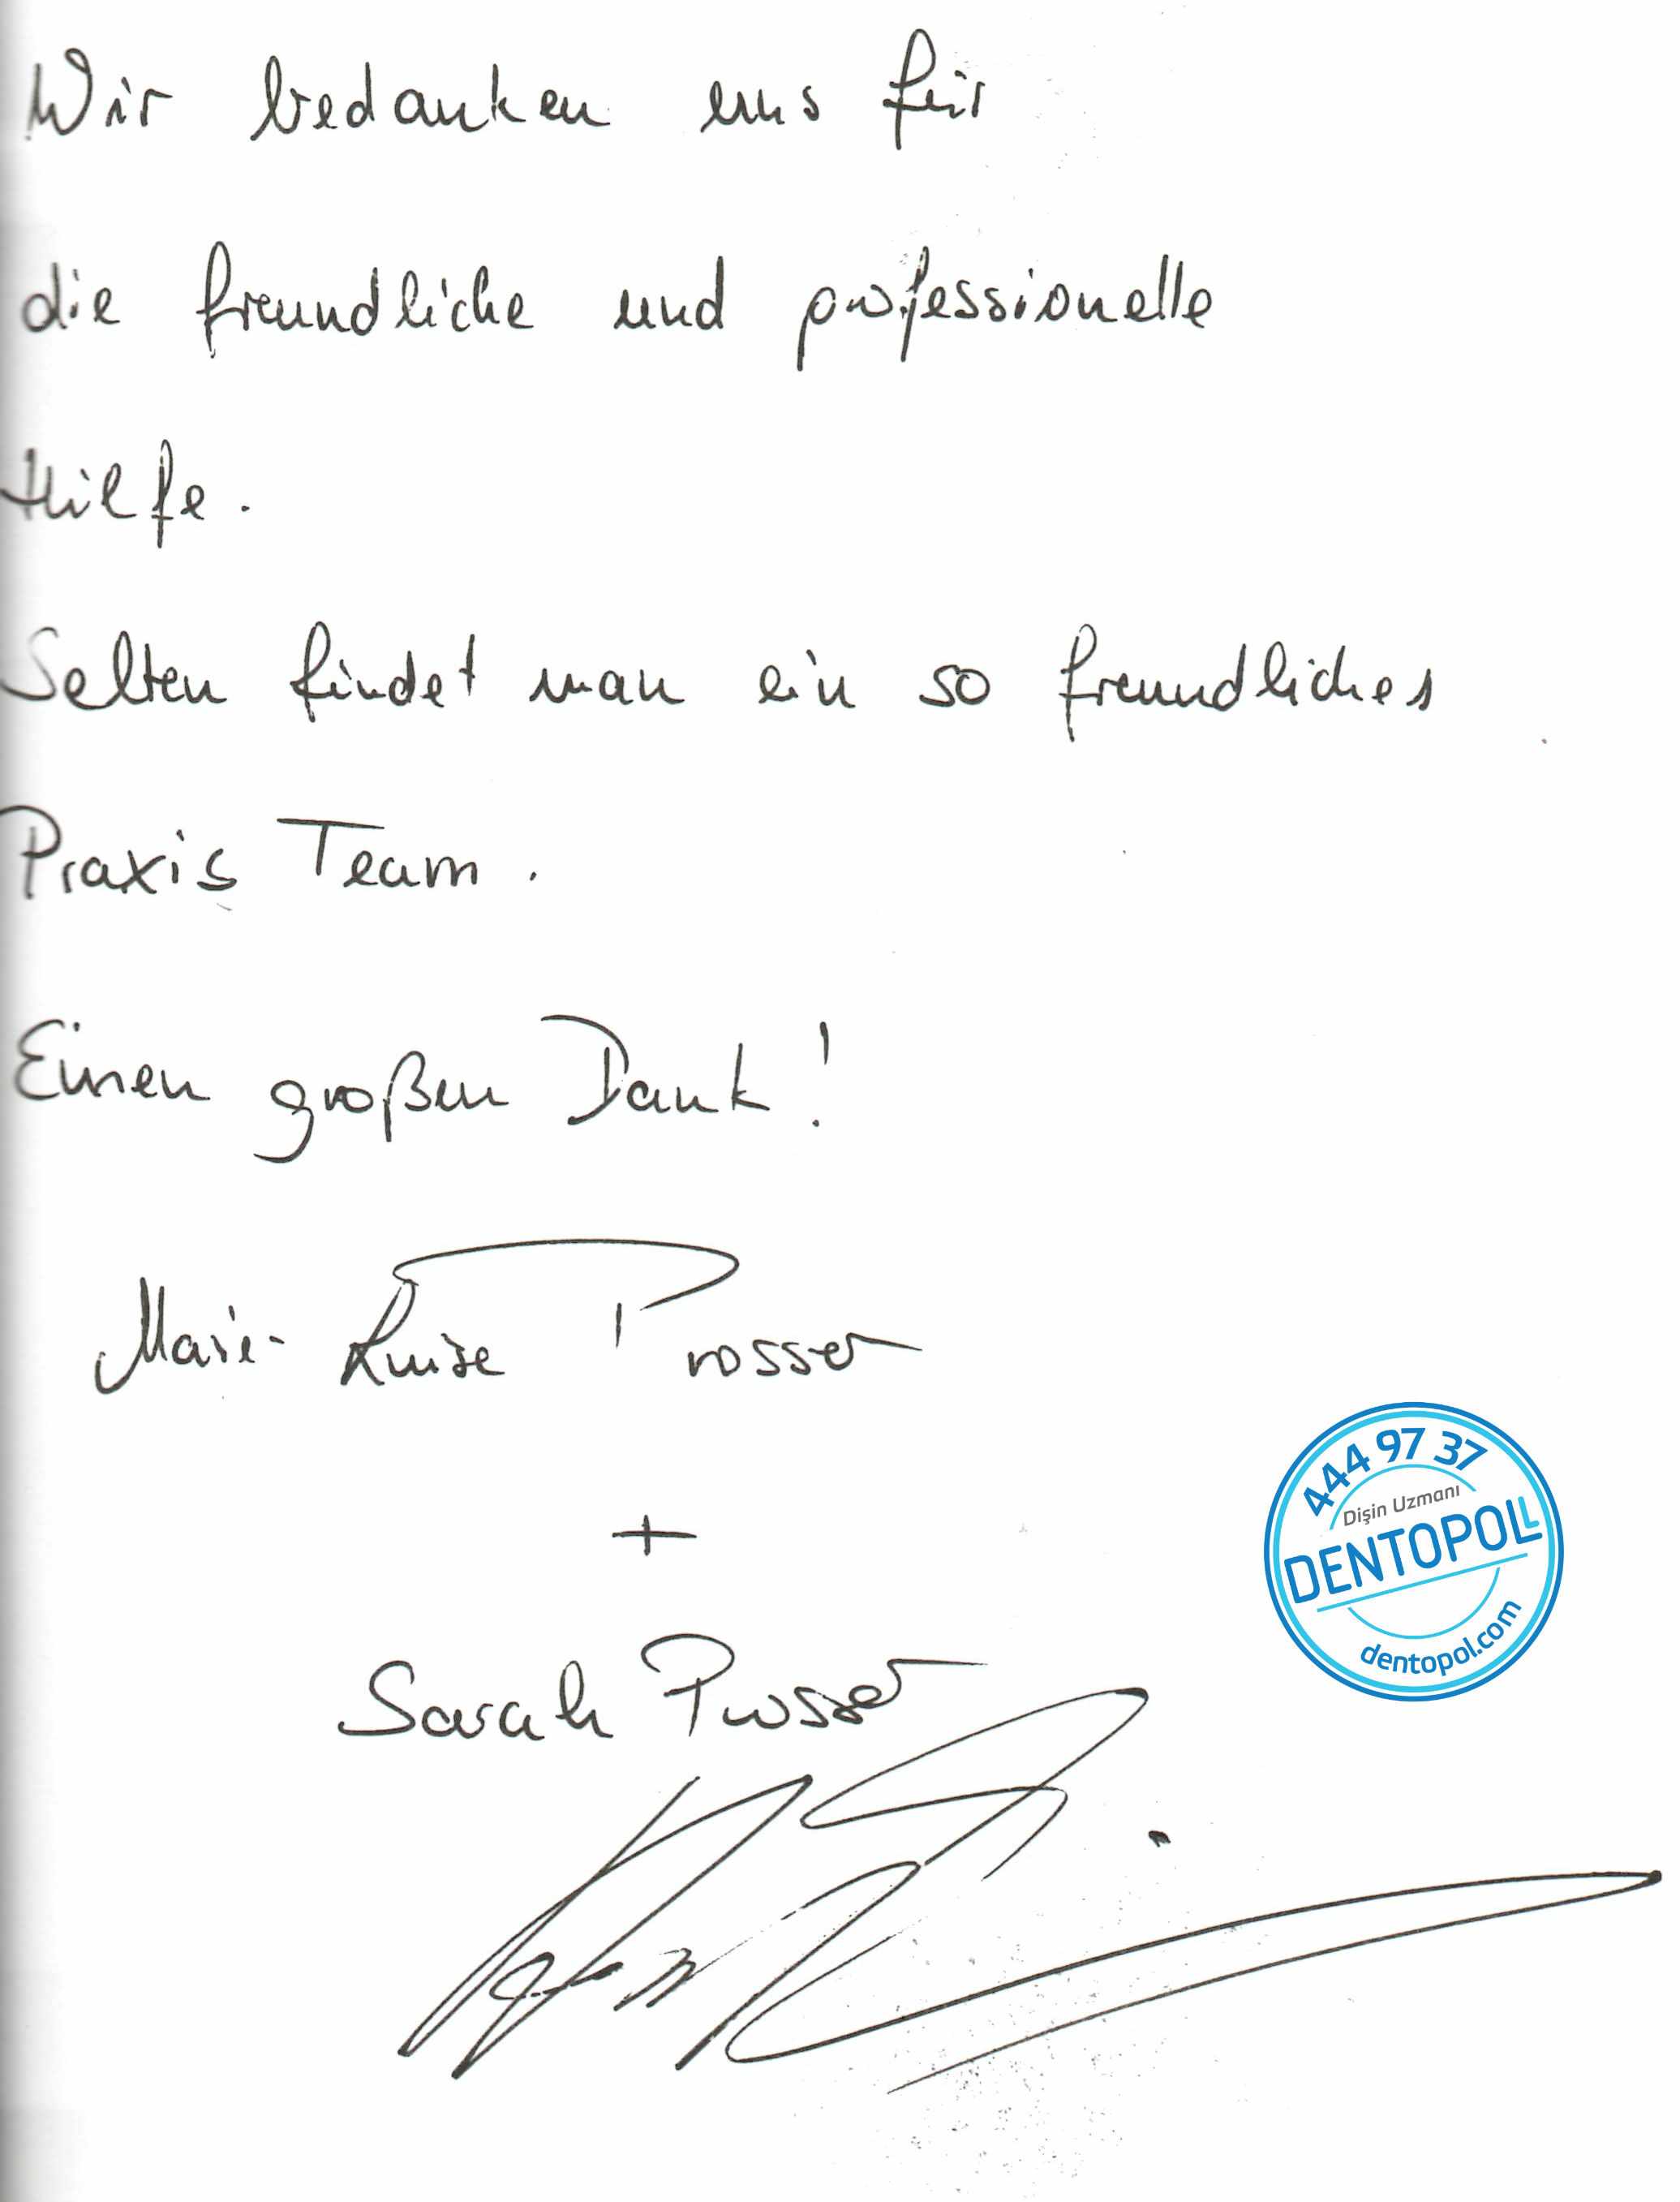 Wir bedanken uns für
die freundliche und professionelle
Hilfe.
Selten findet man ein so freundliches
Praxis Team.
Einen großen Dank!
Marie-Luise Prosser
+
Sarah Prosser
444 97 37
Dişin Uzmanı
DENTOPOL
dentopol.com